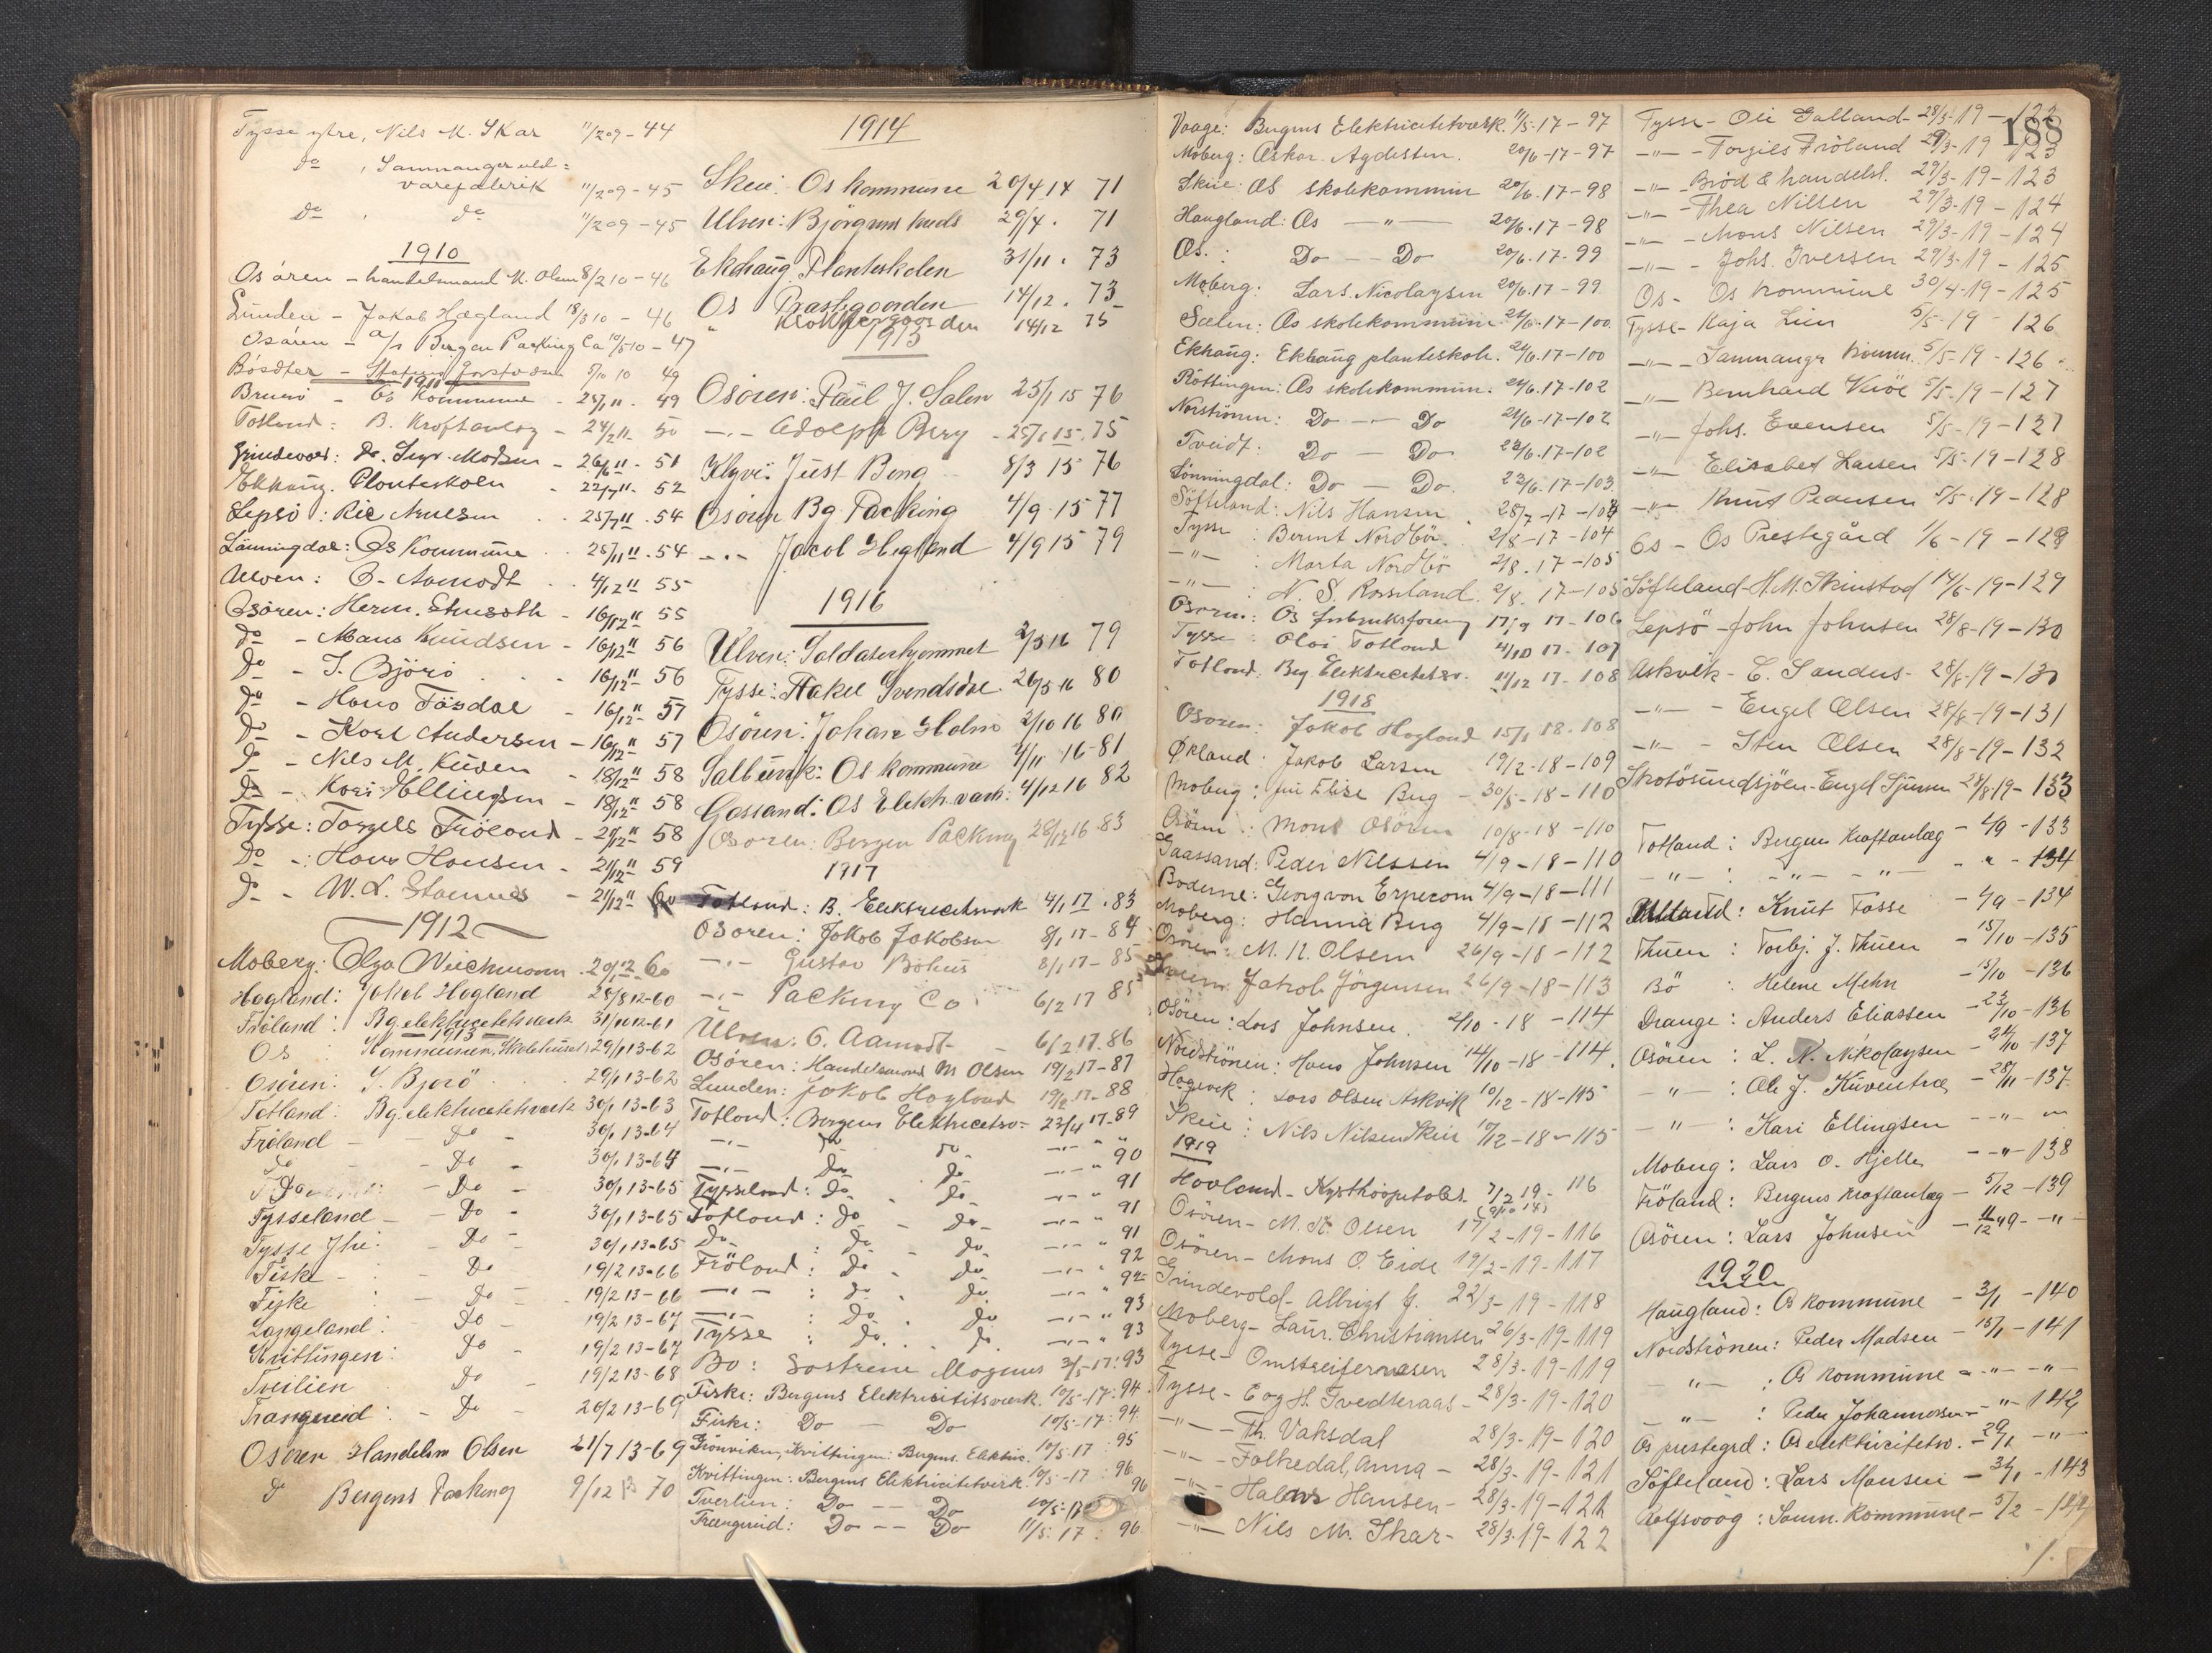 Tysse ytre, Nils M. Skar 11/2 09 - 44
do , Samnanger uld=
varefabrik 11/2 09 - 45
do , do 11/2 09 - 45
1910
Osören - handelsmand M. Olsen 8/2 10 - 46
Lunden - Jakob Hægland 18/3 10 - 46
Osören - A/s Bergen Packing Co 10/5 10 - 47
49
1911
Os Kommune - 49
Totland: B. Kraftanlæg - 24/2 11 - 50
26/6 11 - 51
Ekhaug. Planteskolen - 22/7 11 - 52
Lepsö: 25/7 11 - 54
Lönningdal: Os Kommune 25/11 11 - 54
Ulven: C. Aamodt 4/12 11 55
Osören: Herm. 16/12 11 55
do - Mons Knudsen - 16/12 11 56
do - T. Björö - 16/12 11 56
do - Hans - 16/12 11 57
do - Karl Andersen - 16/12 11 57
do - Nils M. - 18/12 11 58
do - Kari Ellingsen - 18/12 11 58
Tysse: Torgils Fröland - 21/12 11 58
do - : Hans Hansen - 21/12 11 59
do - W. L. - 21/12 11 60
1912
Moberg: Olga Wiechmann 60
Hagland: Jakob Hagland 28/8 12-60
Fröland: Bg. elektricitetsverk 31/10 12-61
1913
Os : Kommunen, Skolehuset 29/1 13-62
Osören: T. Björö 29/1 13-62
Totland: Bg. elektricitetsverk 30/1 13-63
Fröland - - do - 30/1 13-64
do - do - 30/1 13-64
- do - 30/1 13-65
Tysseland - - do - 30/1 13-65
Tysse - do - 30/1 13-65
Fiske - : - do 19/2 13-66
Fiske : - do - 19/2 13-66
Langeland : do - 19/2 13-67
Kvittingen : do - 19/2 13-67
Tveitien do - 19/2 13-68
Trængereid : - do - 20/2 13-69
Osören Handelsm Olsen 21/7 13-69
do Bergens Packing 9/12 13 70
1914
Skeie: Os kommune 20/4 14 71
Ulven: 29/4 . 71
Ekhaug Planteskolen 31/11 . 73
Os Præstegaarden 14/12 . 73
" Klokkergaarden 14/12 75
1915
Osören: Paul J. Salen 25/1 15 76
-"- Adolph Berg - 25/1 15. 75
Just Beng 8/3 15 76
Osören Bg. Packing 4/9 15 77
-"- Jacob Hegland 4/9 15 79
1916
Ulven: Soldaterhjemmet 2/3 16 79
Tysse: Hakel Svendsdal 26/5 16 80
Osören: Johan Holm 2/10 16 80
Salbuvik: Os kommune 4/11 16-81
Gassand: Os Elektr. værk: 4/12 16 82
Osören: Bergen Packing 28/12 16 83
1917
Totland: B. Elektricitetsverk 4/1 17 . 83
Osören: Jakob Jakobsen 8/1 17 - 84
-"- Gustav Böhus 8/1 17 - 85
-"- Packing Co 6/2 17 85
Ulven: C. Aamodt - 6/2 17. 86
Osören: Handelsmand M Olsen 19/2 17-87
Lunden: Jakob Hagland 19/2 17- 88
Totland: Bergens Elektricitetsv= 23/4 17-89
-"- do do. -"- " 90
-"- do do -"- " 91
Tysseland: do . do - -"- " 91
Totland : do - do - -"- " 91
do - : do do -"- " 92
Fröland : do . do -"- " 92
-"- : do . do - -"- " 93
-"- : do . do -"- " 93
Tysse : do . do -"- "
Bö : Söstrene Magnus 3/5-17: 93
Fiske: Bergens Elektricitetsværk. 10/5-17: 94
Fiske: Do — Do 10/5-17: 94
Grönviken, Kvittingen: Bergens Elektr. 10/5 17 : 95
Kvittingen: Bergens Elektricitetsverk. 10/5-17 : 96
Tveitien: Do -- Do 10/5-17 96
Trængereid: Do -- Do 11/5: 17 : 96
188
Vaage: Bergens Elektricitetsværk. 11/5-17 - 97
Moberg: Oskar Agdestein. 20/6-17-97
Skeie: Os skolekommun 20/6. 17-98
Haugland: Os — " — 20/6. 17-98
Os. : Do -- Do 20/6. 17. 99
Moberg: Lars Nicolaysen 20/6. 17 - 99
Sælen: Os skolekommune 21/6-17-100
Ekhaug: Ekhaug planteskole. 21/6. 17-100
Röttingen: Os skolekommun. 21/6. 17-102
Nordströnen: Do -- Do 21/6-17-102
Tveidt: Do — Do 22/6. 17-102
Lönningdal: Do — Do. 22/6. 17-103
Söfteland: Nils Hansen . 28/7 -17 -104
Tysse : Bernt Nordbö. 2/8-17 -104
-"- : Marta Nordbö 2/8. 17 -105
-"- : N. S. Rosseland. 2/8. 17-105
Osören: Os forbruksforening 17/9 17-106
Tysse : Olai Totland 4/10 17- 107
Totland: Berg. Elektricitetsv. 11/12 17-108
1918
Osoren: Jakob Hagland 15/1 18. 108
Økland: Jakob Larsen 19/2-18-109
Moberg: Elise Berg - 30/5-18-110
Osören: Mons Osören 10/8-18 -110
Gaassand: Peder Nilssen 4/9-18-110
Boderne: Georg von Erpecom 4/9-18-111
Moberg: Hanna Berg 4/9-18-112
Osören: M. N. Olsen 26/9-18-112
Jakob Jörgensen 26/9-18-113
Osören: Lars Johnsen. 2/10-18 -114
Nordströnen: Hans Johnsen 14/10-18 -114.
Hagevik: Lars Olsen Askvik 10/12-18-115
Skeie: Nils Nilsen Skeie 10/12-18-115
1919
Hovland - Kysthospitalet 7/2 19 - 116
Osören - M. N. Olsen 17/2-19-116
Osören - Mons O. Eide 19/2-19-117
Grindevold - Albrigt G. 22/3-19-118
Moberg - Laur. Christiansen 26/3-19-119
Tysse - Omstreifervæsen 28/3-19-119
Tysse - E og H. Tvedteraas - 28/3-19-120
-"- - Th. Vaksdal 28/3-19-120
-"- - Folkedal, Anna - 28/3-19-121
-"- - Hansen - 28/3-19-121
-"- Nils M. Skar - 28/3-19-122
Tysse - Oli Galland - 28/3-19 - 122
-"- - Torgils Fröland 29/3-19 123
-"- - Bröd & handelsl. 29/3-19-123
-"- - Thea Nilsen 29/3-19 - 124
-"- - Mons Nilsen 29/3-19 - 124
-"- - Johs. Iversen 29/3-19 - 125
Os - Os kommune 30/4-19-125
Tysse - Kaja Lien 5/5-19 - 126
-"- - Samnanger komm. 5/5-19 - 126
-"- Bernhard 5/5-19 - 127
-"- Johs. Evensen 5/5-19 - 127
-"- Elisabet Larsen 5/5-19 - 128
-"- Knut Pedersen 5/5. 19 - 128
Os - Os Prestegård 1/6-19-129
Söfteland - H. M. Skinstad 14/6-19-129
Lepsö - John Johnsen 28/8-19-130
Askvik - C. Sandus - 28/8-19-130
-"- - Engel Olsen 28/8-19-131
-"- - Sten Olsen 28/8-19-132
Skotösundsjöen - Engel Sjursen 28/8-19-133
Totland: Bergens kraftanlæg - 4/9 - 133
-"- : -"- -"- - " - 134
Knut Tosse - 4/9 - 134
Thuen: Torbj. J. Thuen - 15/10-135
Bö : Helene Mehn - 15/10 - 136
Drange: Anders Eliassen - 23/10-136
Osören: L. N. Nikolaysen - 24/10-137
" : Ole J. Kuventræ - 28/11-137.
" : Kari Ellingsen - -"- "
Moberg: Lars O. Hjelle - -"-138
Fröland: Bergens kraftanlæg - 5/12 -139
Osören: Lars Johnsen - 11/12 19 - " -
1920
Haugland: Os kommune - 3/1 - 140
Nordströnen: Peder Madsen - 15/1 - 141
-"- : Os kommune - -"- -"-
-"- : Peder Johannessen - -"- 142
Os prestegrd: Os elektricitetsv. - 29/1 - " -
Söfteland: Lars Monsen - 31/1 - 143
Rolfsvaag: Samn. kommune - 5/2 - 144